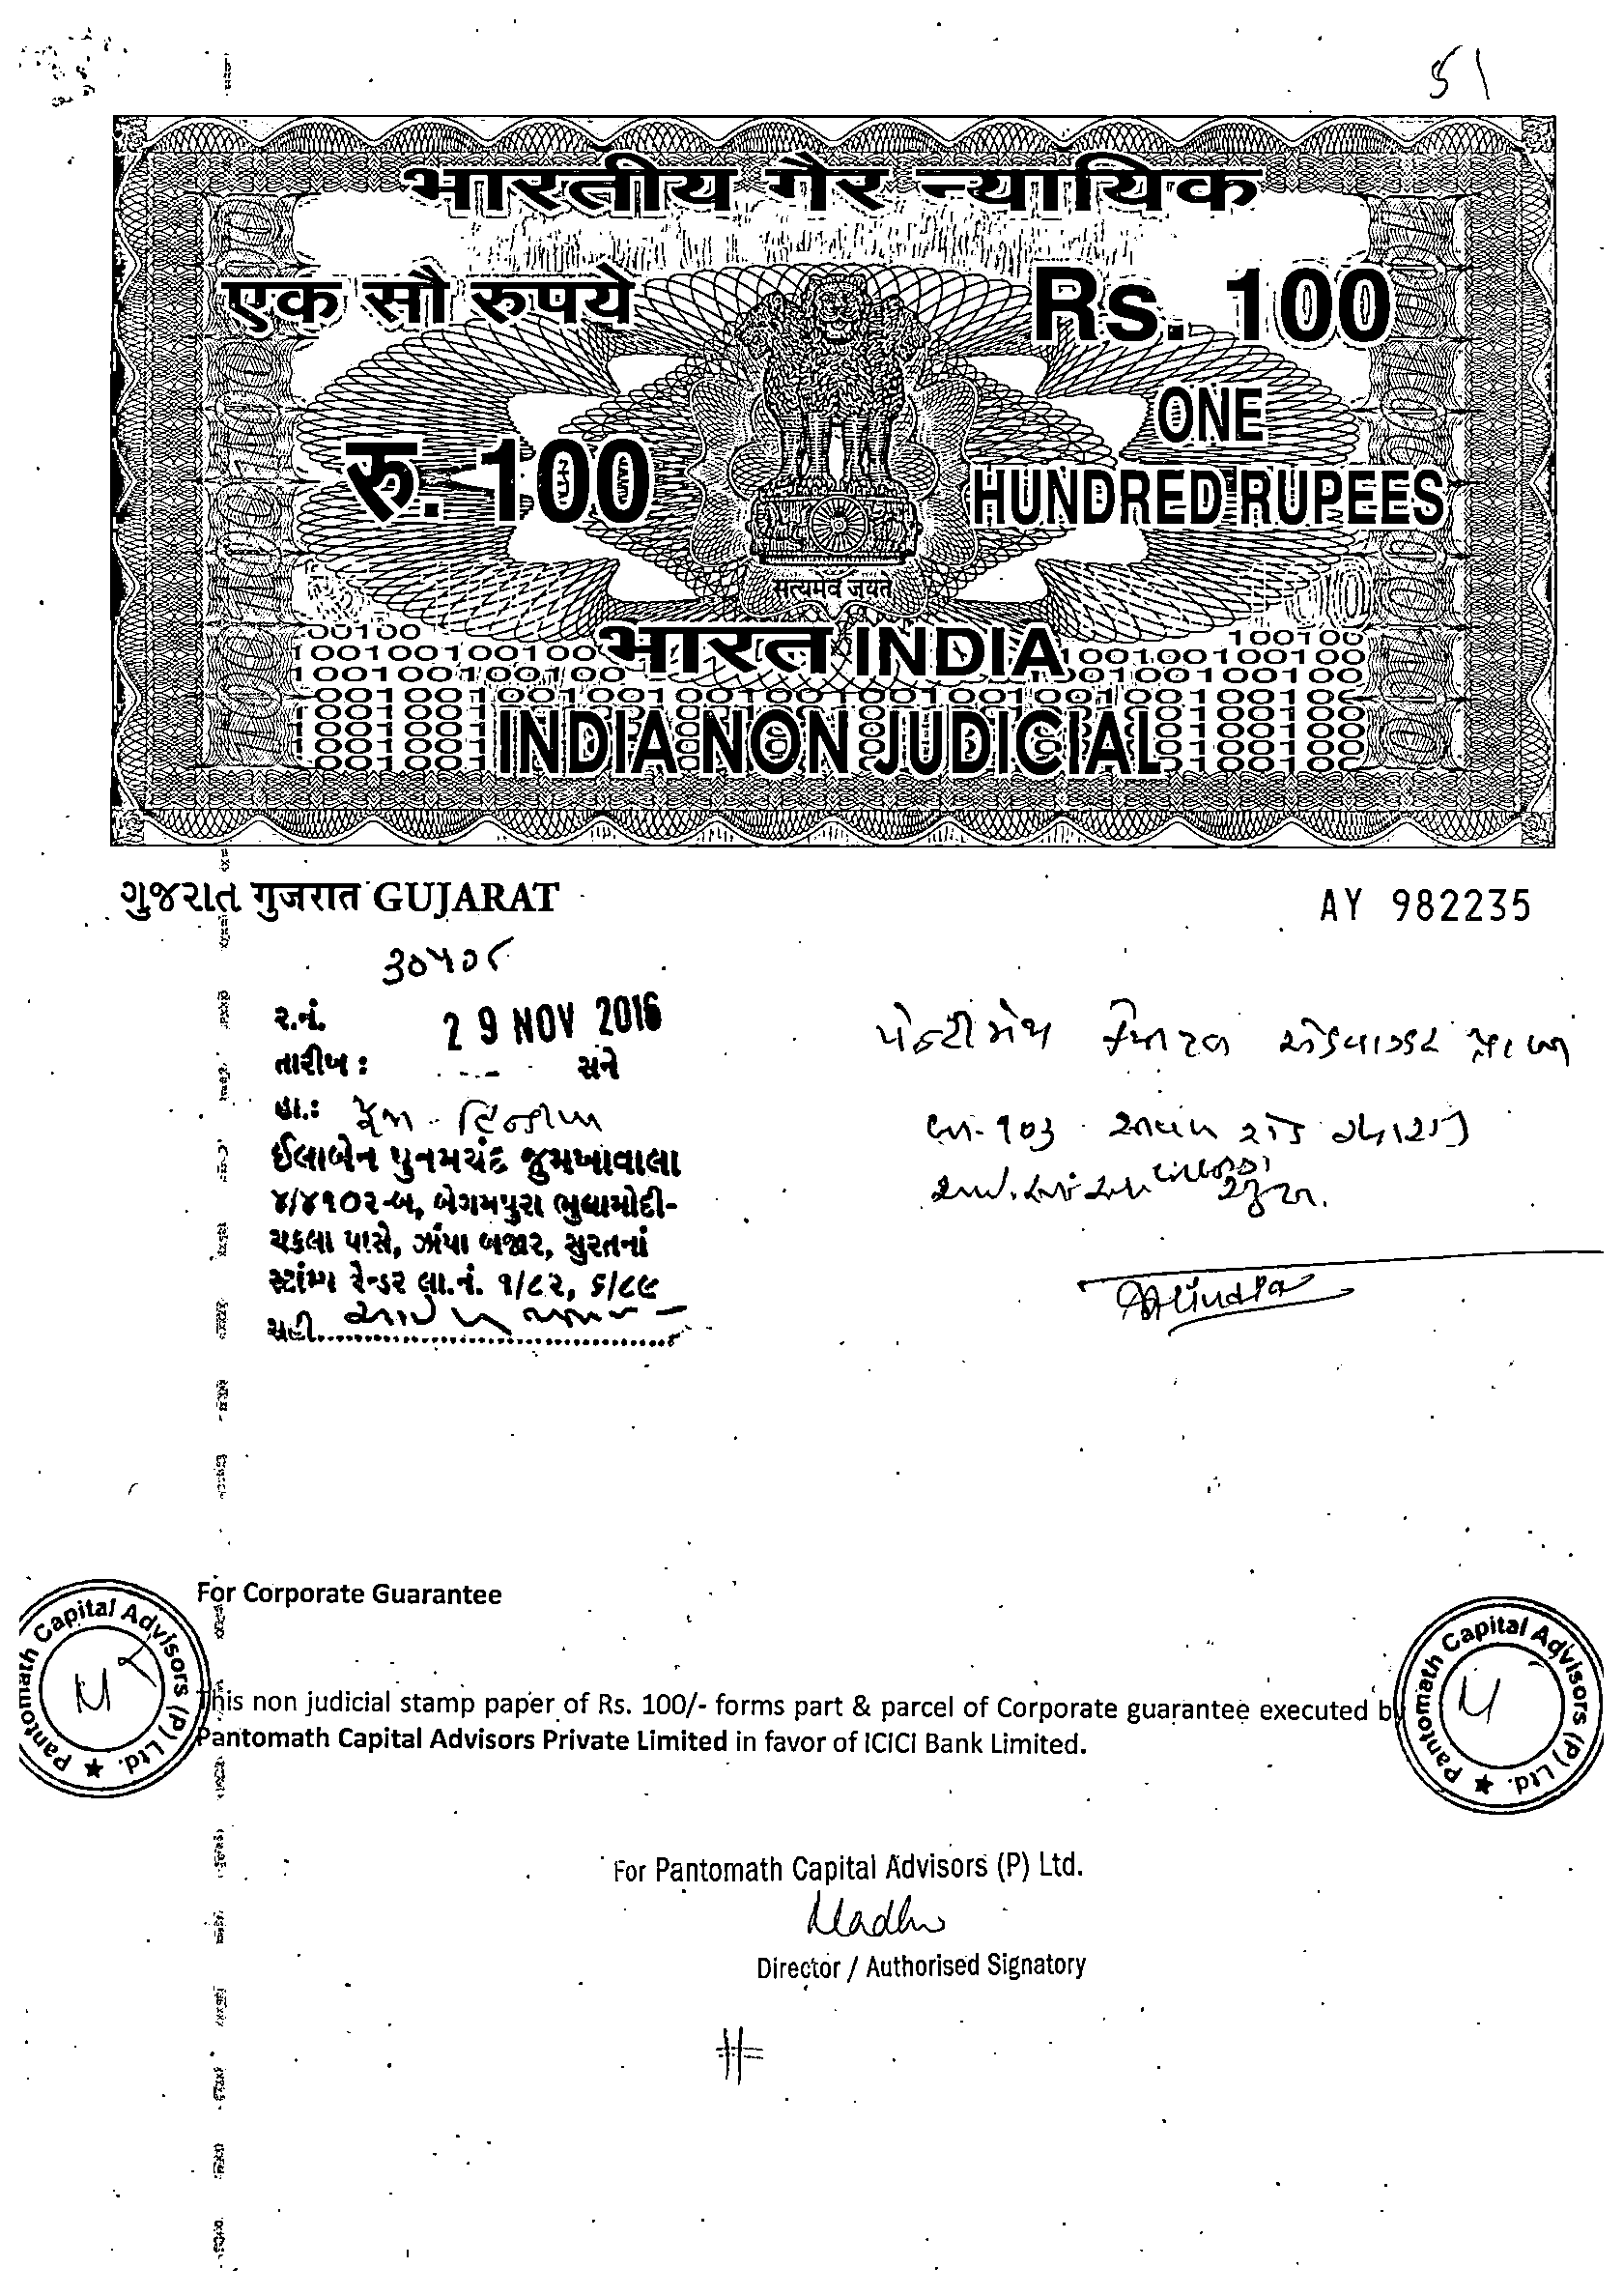 51
भारतीय गैर न्यायिक
एक सौ रुपये
Rs. 100
रु. 100
ONE
HUNDRED RUPEES
सत्यमेव जयते
भारत INDIA
INDIA NON JUDICIAL
ગુજરાત गुजरात GUJARAT
AY 982235
૨.નં.
29 NOV 2016
તારીખ : સને
હા.:
ઈલાબેન પુનમચંદ જુમખાવાલા
૪/૪૧૦૨-બ, બેગમપુરા ભુધામોદી-
ચકલા પાસે, ઝાંપા બજાર, સુરતનાં
સ્ટાંમ્પ વેન્ડર લા.નં. ૧/૮૨, ૬/૮૯
સહી
For Corporate Guarantee
Pantomath Capital Advisors (P) Ltd. ★
Pantomath Capital Advisors (P) Ltd. ★
This non judicial stamp paper of Rs. 100/- forms part & parcel of Corporate guarantee executed by
Pantomath Capital Advisors Private Limited in favor of ICICI Bank Limited.
For Pantomath Capital Advisors (P) Ltd.
Madhu
Director / Authorised Signatory